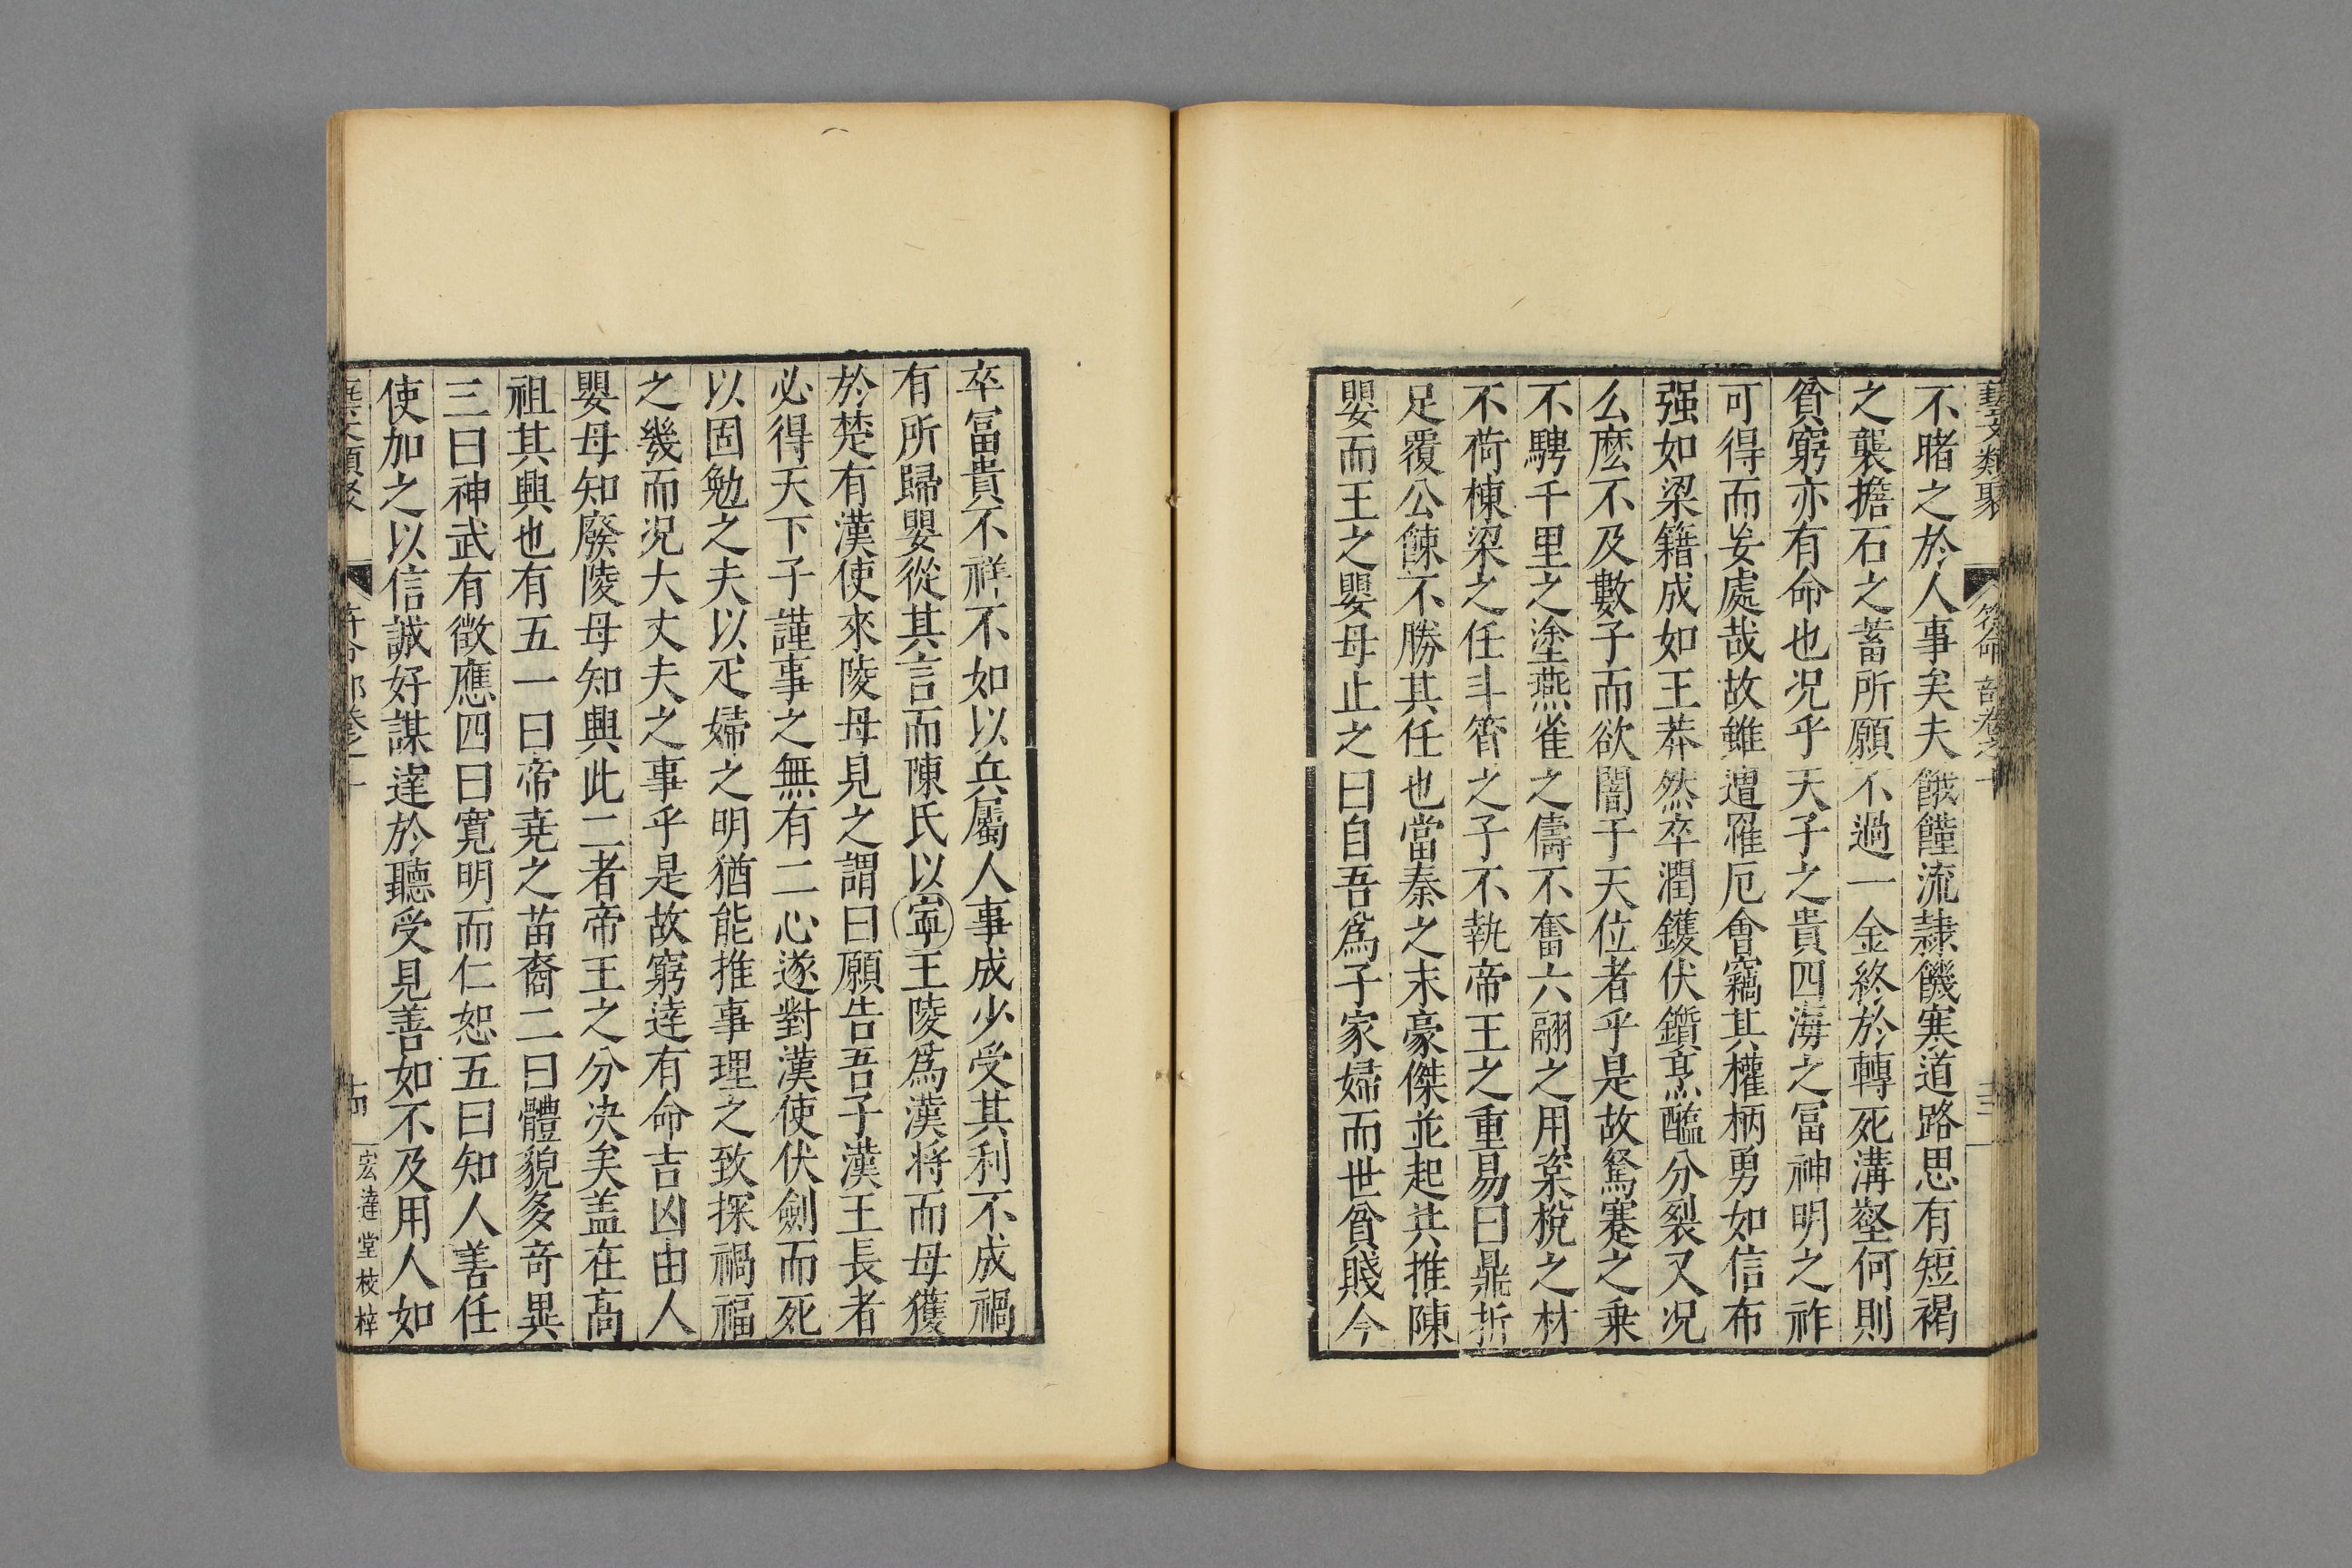 藝文類聚 符命部卷之十 十三
不睹之於人事矣夫餓饉流隷饑寒道路思有短褐
之襲擔石之蓄所願不過一金終於轉死溝壑何則
貧窮亦有命也况乎天子之貴四海之冨神明之祚
可得而妄處哉故雖遭罹厄會竊其權柄勇如信布
强如梁籍成如王莽然卒潤鑊伏鑕烹醢分裂又况
么麽不及數子而欲闇于天位者乎是故駑蹇之乗
不騁千里之塗燕雀之儔不奮六翮之用楶梲之材
不荷棟梁之任斗筲之子不執帝王之重易曰鼎折
足覆公餗不勝其任也當秦之末豪傑並起共推陳
嬰而王之嬰母止之曰自吾爲子家婦而世貧賤今
卒冨貴不祥不如以兵屬人事成少受其利不成禍
有所歸嬰從其言而陳氏以寧王陵爲漢将而母獲
於楚有漢使來陵母見之謂曰願告吾子漢王長者
必得天下子謹事之無有二心遂對漢使伏劍而死
以固勉之夫以疋婦之明猶能推事理之致探禍福
之幾而况大丈夫之事乎是故窮逹有命吉凶由人
嬰母知廢陵母知興此二者帝王之分决矣盖在高
祖其興也有五一曰帝尭之苗裔二曰體貌多竒異
三曰神武有徵應四曰寛明而仁恕五曰知人善任
使加之以信誠好謀逹於聽受見善如不及用人如
藝文類聚 符命部卷之十 十四 宏逹堂校梓